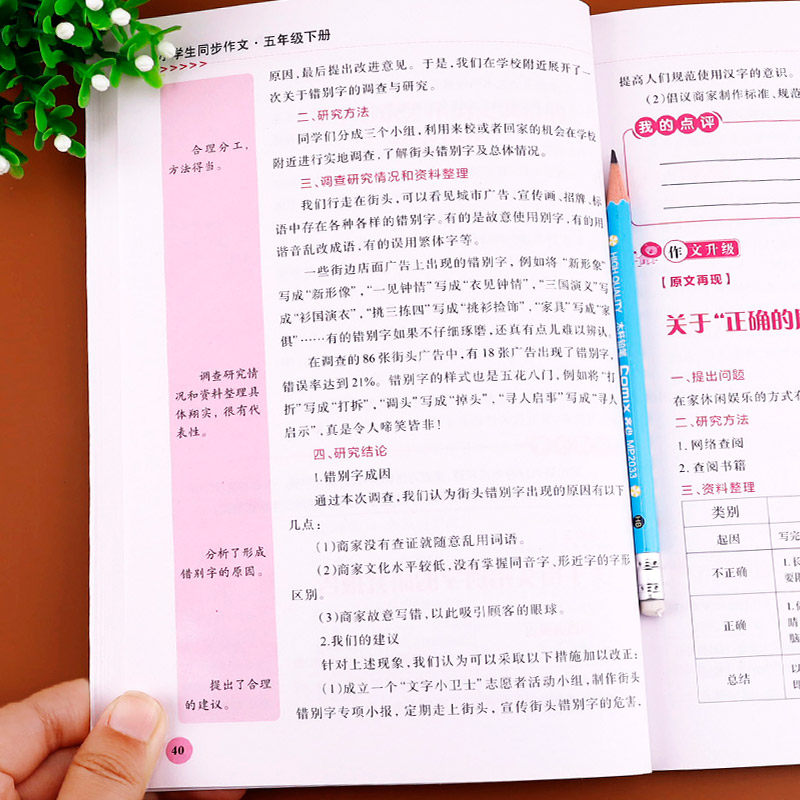 小学生同步作文·五年级下册
>>>>>
原因,最后提出改进意见。于是,我们在学校附近展开了一
次关于错别字的调查与研究。
二、研究方法
同学们分成三个小组,利用来校或者回家的机会在学校
附近进行实地调查,了解街头错别字及总体情况。
三、调查研究情况和资料整理
我们行走在街头,可以看见城市广告、宣传画、招牌、标
语中存在各种各样的错别字。有的是故意使用别字,有的用
谐音乱改成语,有的误用繁体字等。
一些街边店面广告上出现的错别字,例如将“新形象”
写成“新形像”,“一见钟情”写成“衣见钟情”,“三国演义”写
成“衫国演衣”,“挑三拣四”写成“挑衫捡饰”,“家具”写成“家
俱”……有的错别字如果不仔细琢磨,还真有点儿难以辨认。
在调查的86张街头广告中,有18张广告出现了错别字,
错误率达到21%。错别字的样式也是五花八门,例如将“打
折”写成“打拆”,“调头”写成“掉头”,“寻人启事”写成“寻人
启示”,真是令人啼笑皆非!
四、研究结论
1.错别字成因
通过本次调查,我们认为街头错别字出现的原因有以下
几点:
(1)商家没有查证就随意乱用词语。
(2)商家文化水平较低,没有掌握同音字、形近字的字形
区别。
(3)商家故意写错,以此吸引顾客的眼球。
2.我们的建议
针对上述现象,我们认为可以采取以下措施加以改正:
(1)成立一个“文字小卫士”志愿者活动小组,制作街头
错别字专项小报,定期走上街头,宣传街头错别字的危害,
合理分工,
方法得当。
调查研究情
况和资料整理具
体翔实,很有代
表性。
分析了形成
错别字的原因。
提出了合理
的建议。
40
HIGH QUALITY
Comix 齐心 MP2033
HB
提高人们规范使用汉字的意识。
(2)倡议商家制作标准、规范
我的点评
作文升级
【原文再现】
关于“正确的
一、提出问题
在家休闲娱乐的方式有
二、研究方法
1.网络查阅
2.查阅书籍
三、资料整理
类别
起因 写完
不正确 1.长
要跟
正确
睛
脑
总结 以
即